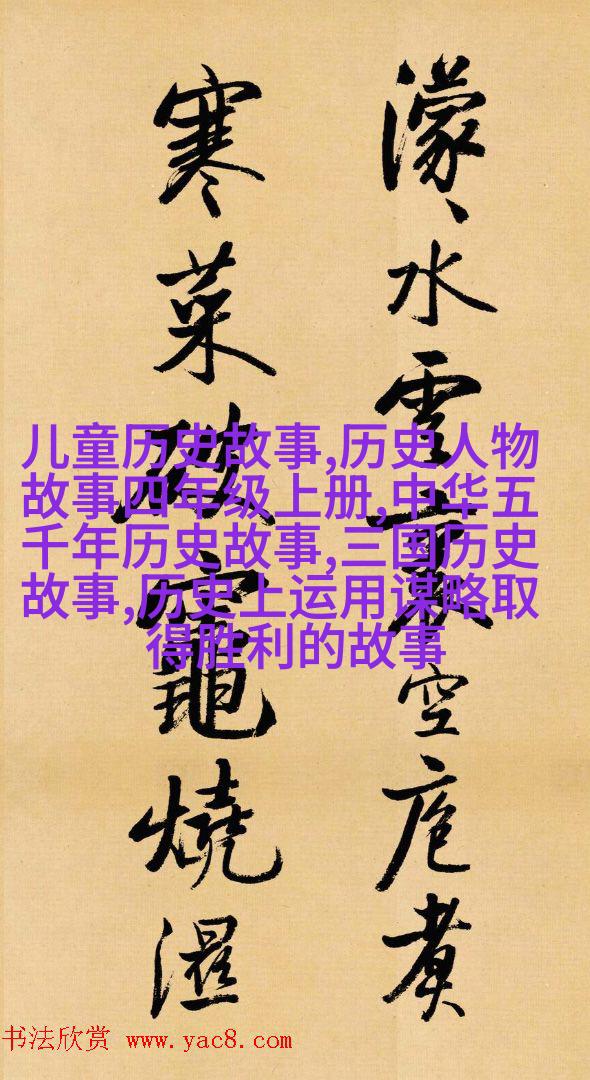 濛〻水雲裏空庖煮
寒菜破竈燒濕
儿童历史故事,历史人物
故事四年级上册,中华五
千年历史故事,三国历史
故事,历史上运用谋略取
得胜利的故事
书法欣赏 www.yac8.com